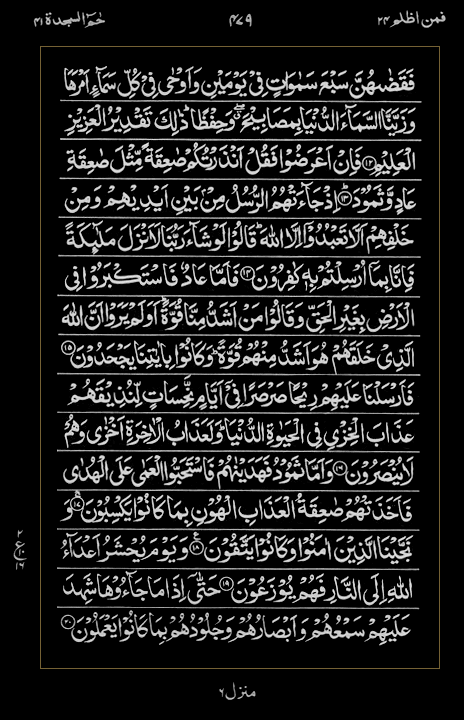 فمن اظلم ۲۴ ۴۷۹ حٰمٓ السجدة ۴۱
فَقَضٰىهُنَّ سَبْعَ سَمٰوَاتٍ فِىْ يَوْمَيْنِ وَاَوْحٰى فِىْ كُلِّ سَمَآءٍ اَمْرَهَا
وَزَيَّنَّا السَّمَآءَ الدُّنْيَا بِمَصَابِيْحَ ۖ وَحِفْظًا ؕ ذٰلِكَ تَقْدِيْرُ الْعَزِيْزِ
الْعَلِيْمِ ۝۱۲ فَاِنْ اَعْرَضُوْا فَقُلْ اَنْذَرْتُكُمْ صٰعِقَةً مِّثْلَ صٰعِقَةِ
عَادٍ وَّثَمُوْدَ ؕ ۝۱۳ اِذْ جَآءَتْهُمُ الرُّسُلُ مِنْۢ بَيْنِ اَيْدِيْهِمْ وَمِنْ
خَلْفِهِمْ اَلَّا تَعْبُدُوْۤا اِلَّا اللّٰهَ ؕ قَالُوْا لَوْ شَآءَ رَبُّنَا لَاَنْزَلَ مَلٰٓٮِٕكَةً
فَاِنَّا بِمَاۤ اُرْسِلْتُمْ بِهٖ كٰفِرُوْنَ ۝۱۴ فَاَمَّا عَادٌ فَاسْتَكْبَرُوْا فِى
الْاَرْضِ بِغَيْرِ الْحَقِّ وَقَالُوْا مَنْ اَشَدُّ مِنَّا قُوَّةً ؕ اَوَلَمْ يَرَوْا اَنَّ اللّٰهَ
الَّذِىْ خَلَقَهُمْ هُوَ اَشَدُّ مِنْهُمْ قُوَّةً ؕ وَكَانُوْا بِاٰيٰتِنَا يَجْحَدُوْنَ ۝۱۵
فَاَرْسَلْنَا عَلَيْهِمْ رِيْحًا صَرْصَرًا فِىْۤ اَيَّامٍ نَّحِسَاتٍ لِّنُذِيْقَهُمْ
عَذَابَ الْخِزْىِ فِى الْحَيٰوةِ الدُّنْيَا ؕ وَلَعَذَابُ الْاٰخِرَةِ اَخْزٰى وَهُمْ
لَا يُنْصَرُوْنَ ۝۱۶ وَاَمَّا ثَمُوْدُ فَهَدَيْنٰهُمْ فَاسْتَحَبُّوا الْعَمٰى عَلَى الْهُدٰى
فَاَخَذَتْهُمْ صٰعِقَةُ الْعَذَابِ الْهُوْنِ بِمَا كَانُوْا يَكْسِبُوْنَ ۝۱۷ وَ
نَجَّيْنَا الَّذِيْنَ اٰمَنُوْا وَكَانُوْا يَتَّقُوْنَ ۝۱۸ وَيَوْمَ يُحْشَرُ اَعْدَآءُ
اللّٰهِ اِلَى النَّارِ فَهُمْ يُوْزَعُوْنَ ۝۱۹ حَتّٰٓى اِذَا مَا جَآءُوْهَا شَهِدَ
عَلَيْهِمْ سَمْعُهُمْ وَاَبْصَارُهُمْ وَجُلُوْدُهُمْ بِمَا كَانُوْا يَعْمَلُوْنَ ۝۲۰
منزل ۶